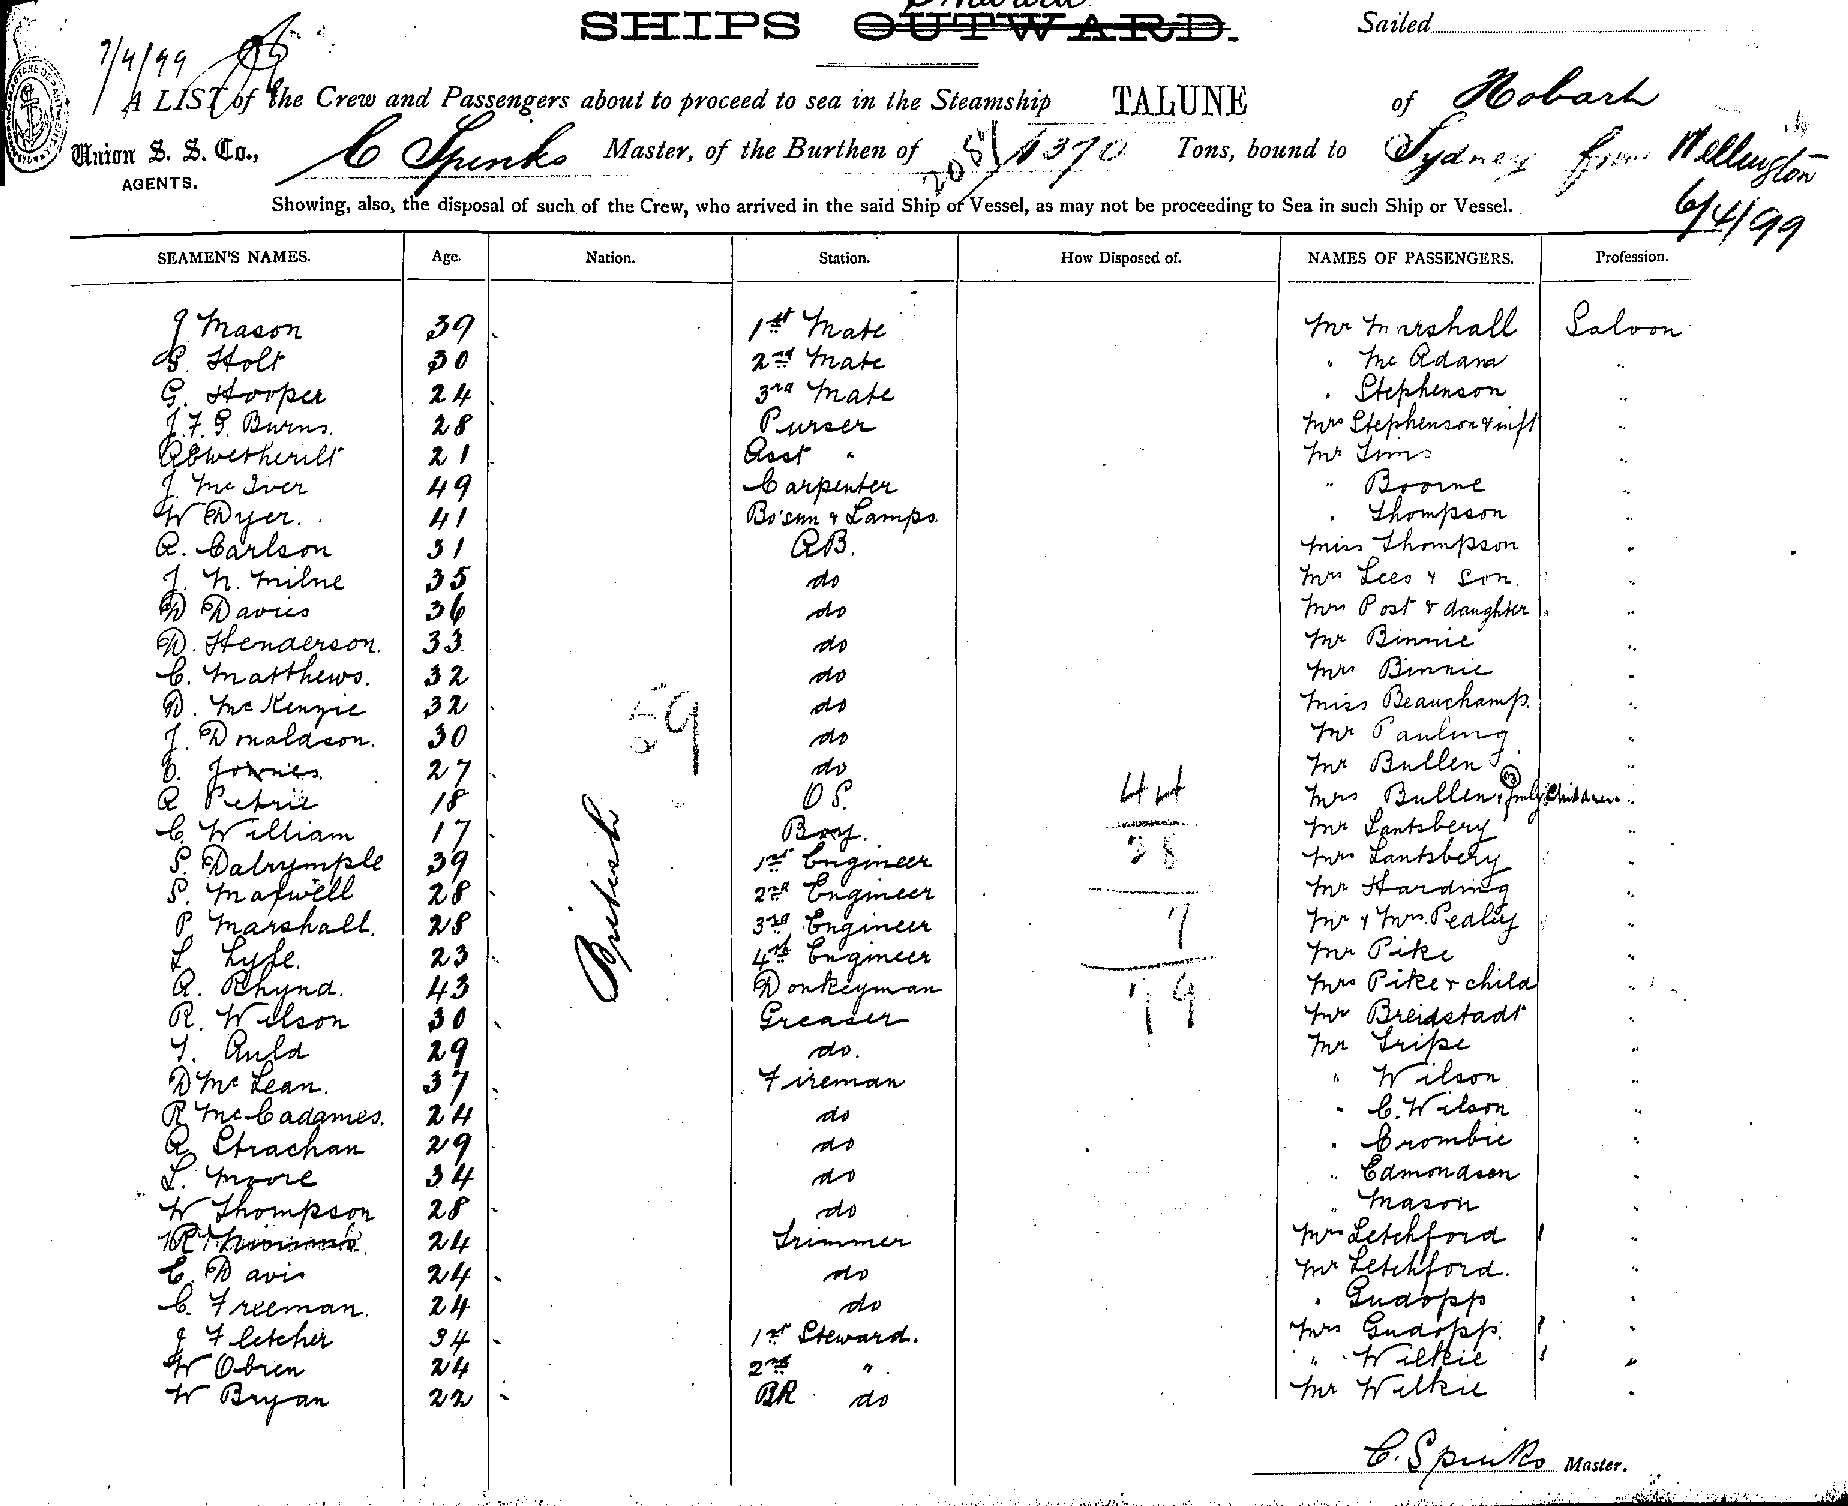 Inward
SHIPS OUTWARD.
Sailed
7/4/99
A LIST of the Crew and Passengers about to proceed to sea in the Steamship TALUNE of Hobart
Union S. S. Co., AGENTS.
C Spinks Master, of the Burthen of 2087/1370 Tons, bound to Sydney from Wellington
6/4/99
Showing, also, the disposal of such of the Crew, who arrived in the said Ship or Vessel, as may not be proceeding to Sea in such Ship or Vessel.
SEAMEN'S NAMES. Age. Nation. Station. How Disposed of. NAMES OF PASSENGERS. Profession.
J Mason 39 1st Mate Mr Marshall Saloon
G. Holt 30 2nd Mate " Mc Adam "
G. Hooper 24 3rd Mate " Stephenson "
J. F. G. Burns. 28 Purser Mrs Stephenson & inft "
21 Asst " Mr Sims "
J. Mc Iver 49 Carpenter " Boorne "
W Dyer. 41 Bo'sun & Lamps " Thompson "
A. Carlson 31 AB. Miss Thompson "
J. N. Milne 35 do Mrs Lees & Son. "
D Davies 36 do Mrs Post & daughter "
D. Henderson. 33 do Mr Binnie "
C. Matthews. 32 do Mrs Binnie "
D. McKenzie 32 do Miss Beauchamp. "
J. Donaldson. 30 do Mr Pauling "
27 do Mr Bullen "
A Petrie 18 OS. 44 Mrs Bullen & fmly (3) Children "
C. William 17 Boy. Mr Lantsbery "
S. Dalrymple 39 1st Engineer 28 Mrs Lantsbery "
S. Maxwell 28 2nd Engineer Mr Harding "
P Marshall. 28 3rd Engineer 7 Mr & Mrs. Pedley "
L Lyfe. 23 4th Engineer Mr Pike "
A. Rhynd. 43 Donkeyman 79 Mrs Pike & child "
R. Wilson 30 Greaser Mr Breidstadt "
T. Auld 29 do. Mr Tripe "
D Mc Lean. 37 Fireman " Wilson "
R McCadames. 24 do " C. Wilson "
A Strachan 29 do " Crombie "
L. Moore 34 do " Edmondson "
W Thompson 28 do " Mason "
24 Trimmer Mrs Letchford "
C. Davis 24 do Mr Letchford. "
C. Freeman. 24 do " Gudopp "
J Fletcher 34 1st Steward. Mrs Gudopp. "
W Obrien 24 2nd " " Wilkie "
W Bryan 22 BR do Mr Wilkie "
59
British
C. Spinks Master.